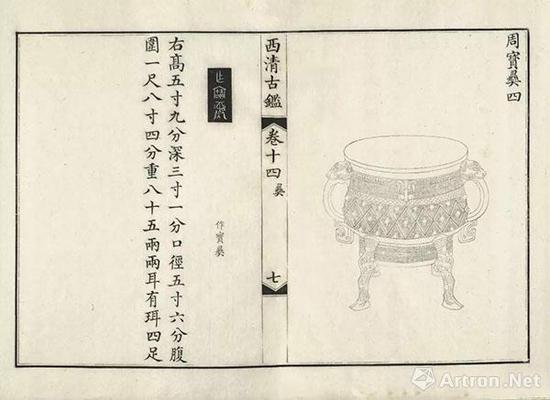 周寶彝四
西清古鑑
卷十四
彝
七
作寶彝
作寶彝
右高五寸九分深三寸一分口徑五寸六分腹
圍一尺八寸四分重八十五兩兩耳有珥四足
Artron.Net